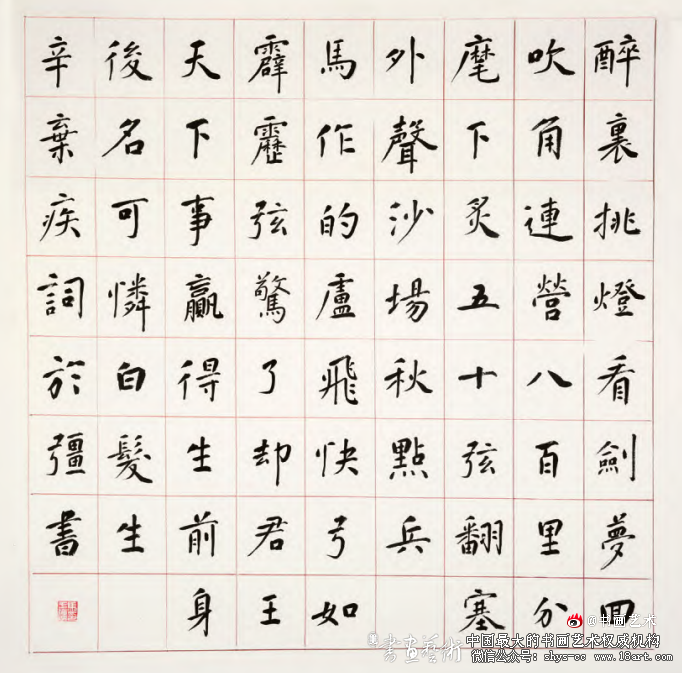 醉裏挑燈看劍夢回
吹角連營八百里分
麾下炙五十弦翻塞
外聲沙場秋點兵
馬作的盧飛快弓如
霹靂弦驚了却君王
天下事贏得生前身
後名可憐白髮生
辛棄疾詞於彊書
@书画艺术
書画藝術
中国最大的书画艺术权威机构
微信公众号: shys-cc www.18art.com